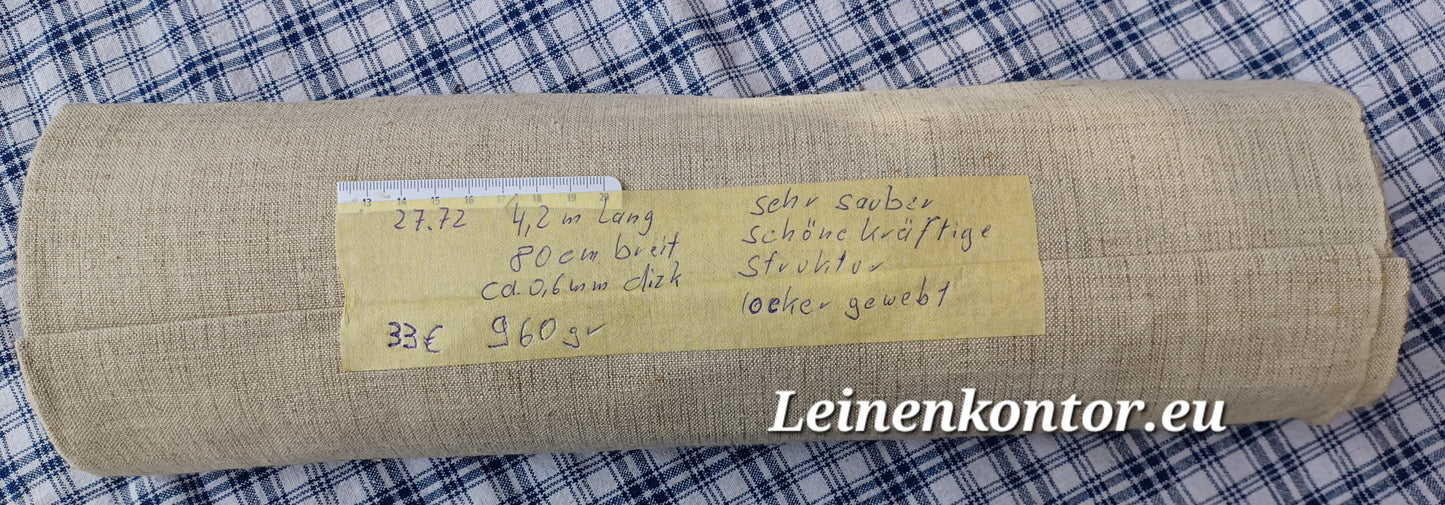 13 14 15 16 17 18 19 20
27.72
4,2 m lang
80cm breit
ca. 0,6mm dick
33€
960gr
sehr sauber
schöne kräftige
Struktur
locker gewebt
Leinenkontor.eu